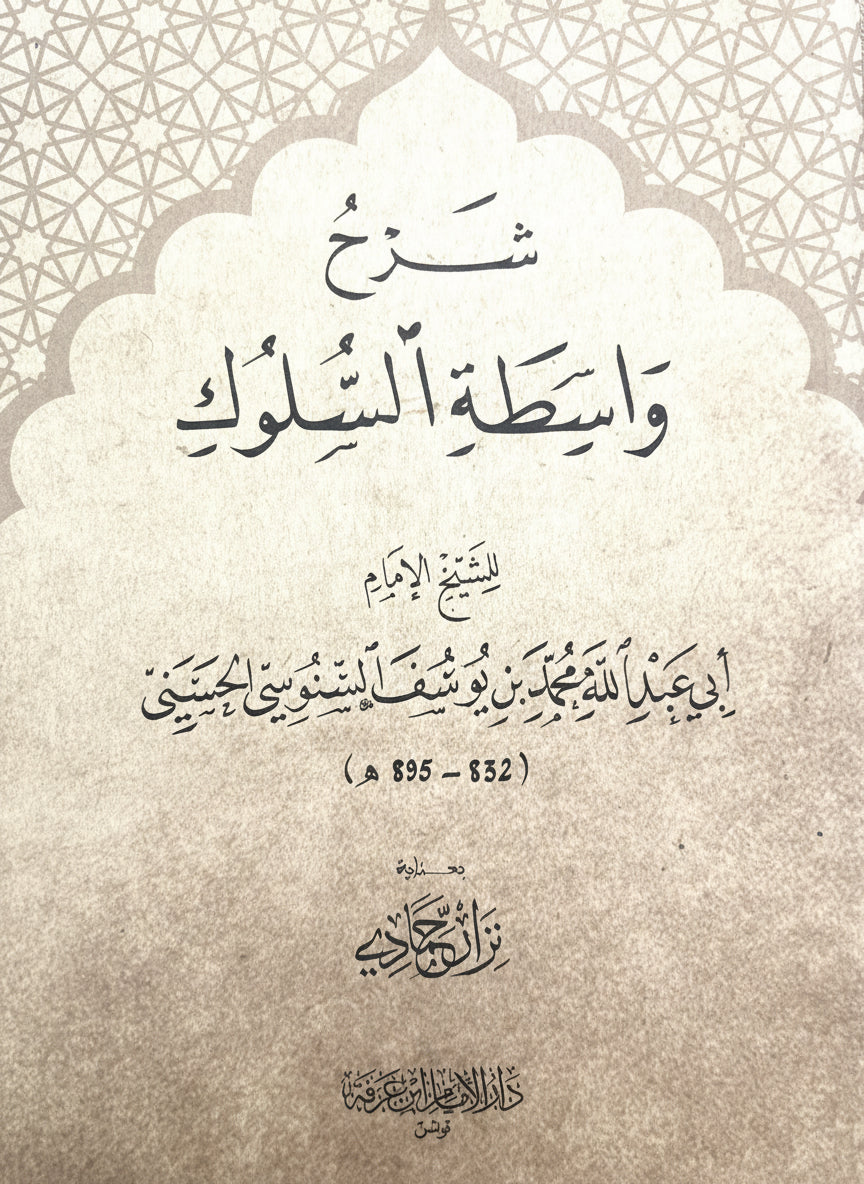 شَرْحُ
وَاسِطَةِ ٱلسُّلُوكِ
لِلشَّيْخِ الإِمَامِ
أَبِي عَبْدِ ٱللَّهِ مُحَمَّدِ بْنِ يُوسُفَ ٱلسَّنُوسِيِّ الحَسَنِيِّ
(832 – 895 هـ)
بعناية
نِزَار حَمَّادِي
دَارُ الإِمَامِ ابْنِ عَرَفَة
تونس